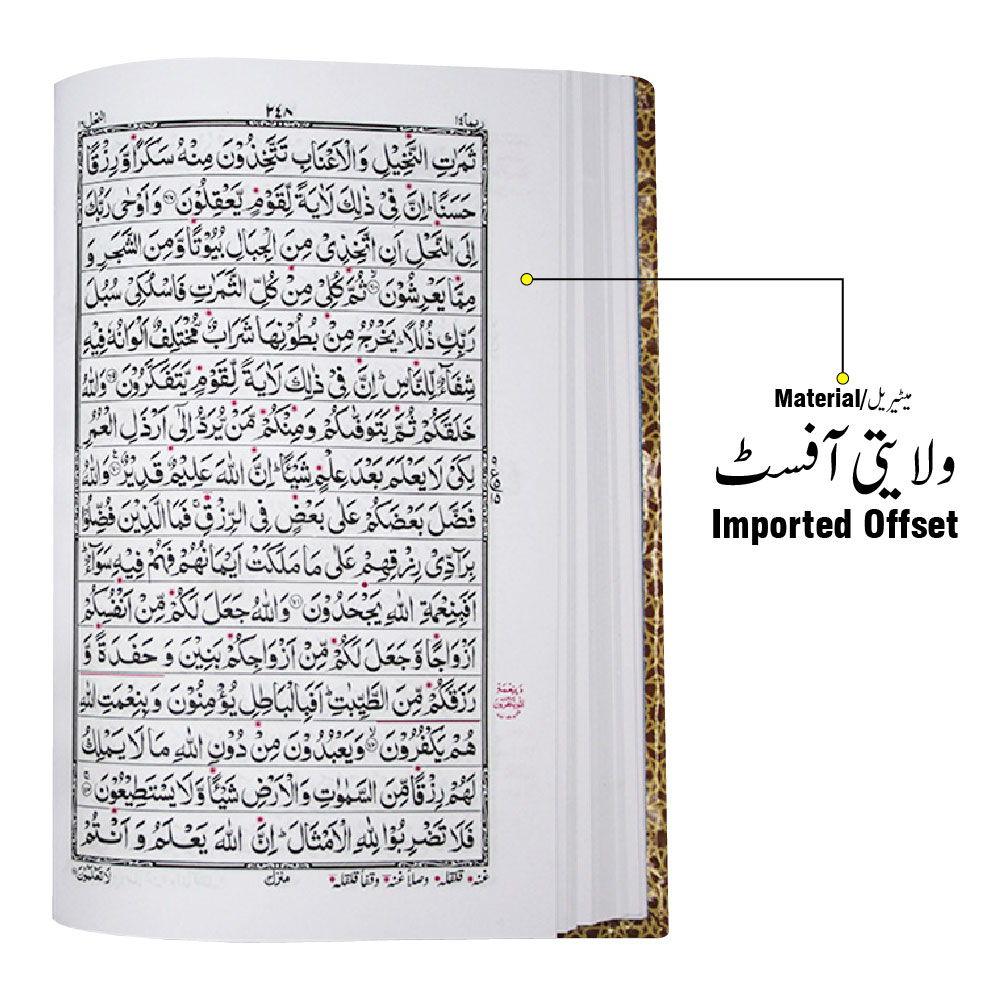 ربما ۱۴
۲۴۸
النحل ۱۶
ثَمَرٰتِ النَّخِيْلِ وَالْاَعْنَابِ تَتَّخِذُوْنَ مِنْهُ سَكَرًا وَّرِزْقًا
حَسَنًا ؕ اِنَّ فِيْ ذٰلِكَ لَاٰيَةً لِّقَوْمٍ يَّعْقِلُوْنَ ۶۷ وَاَوْحٰى رَبُّكَ
اِلَى النَّحْلِ اَنِ اتَّخِذِيْ مِنَ الْجِبَالِ بُيُوْتًا وَّمِنَ الشَّجَرِ وَ
مِمَّا يَعْرِشُوْنَ ۶۸ ثُمَّ كُلِيْ مِنْ كُلِّ الثَّمَرٰتِ فَاسْلُكِيْ سُبُلَ
رَبِّكِ ذُلُلًا ؕ يَخْرُجُ مِنْۢ بُطُوْنِهَا شَرَابٌ مُّخْتَلِفٌ اَلْوَانُهٗ فِيْهِ
شِفَآءٌ لِّلنَّاسِ ؕ اِنَّ فِيْ ذٰلِكَ لَاٰيَةً لِّقَوْمٍ يَّتَفَكَّرُوْنَ ۶۹ وَاللّٰهُ
خَلَقَكُمْ ثُمَّ يَتَوَفّٰىكُمْ وَمِنْكُمْ مَّنْ يُّرَدُّ اِلٰٓى اَرْذَلِ الْعُمُرِ
لِكَيْ لَا يَعْلَمَ بَعْدَ عِلْمٍ شَيْـًٔا ؕ اِنَّ اللّٰهَ عَلِيْمٌ قَدِيْرٌ ۷۰ وَاللّٰهُ
فَضَّلَ بَعْضَكُمْ عَلٰى بَعْضٍ فِي الرِّزْقِ ۚ فَمَا الَّذِيْنَ فُضِّلُوْا
بِرَآدِّيْ رِزْقِهِمْ عَلٰى مَا مَلَكَتْ اَيْمَانُهُمْ فَهُمْ فِيْهِ سَوَآءٌ ؕ
اَفَبِنِعْمَةِ اللّٰهِ يَجْحَدُوْنَ ۷۱ وَاللّٰهُ جَعَلَ لَكُمْ مِّنْ اَنْفُسِكُمْ
اَزْوَاجًا وَّجَعَلَ لَكُمْ مِّنْ اَزْوَاجِكُمْ بَنِيْنَ وَحَفَدَةً وَّ
رَزَقَكُمْ مِّنَ الطَّيِّبٰتِ ؕ اَفَبِالْبَاطِلِ يُؤْمِنُوْنَ وَبِنِعْمَتِ اللّٰهِ
هُمْ يَكْفُرُوْنَ ۷۲ وَيَعْبُدُوْنَ مِنْ دُوْنِ اللّٰهِ مَا لَا يَمْلِكُ
لَهُمْ رِزْقًا مِّنَ السَّمٰوٰتِ وَالْاَرْضِ شَيْـًٔا وَّلَا يَسْتَطِيْعُوْنَ ۷۳
فَلَا تَضْرِبُوْا لِلّٰهِ الْاَمْثَالَ ؕ اِنَّ اللّٰهَ يَعْلَمُ وَاَنْتُمْ
غنہ • قلقلہ • وصلاً غنہ • وقفا قلقلہ
منزل ۳
لا تعلمون
Material/میٹیریل
ولایتی آفسٹ
Imported Offset